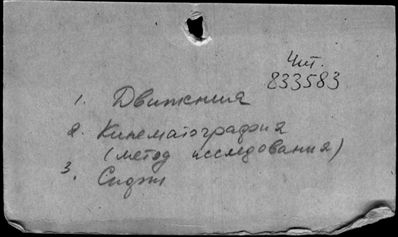 Чит.
833583
1. Движения
2. Кинематография
(метод исследования)
3.